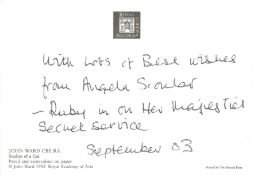 ROYAL
ACADEMY
With Lots of Best wishes
from Angela Scoular
- Ruby in on Her Majesties
Secret Service
September 03
JOHN WARD CBE RA
Studies of a Cat
Pencil and watercolour on paper
© John Ward 1993 Royal Academy of Arts